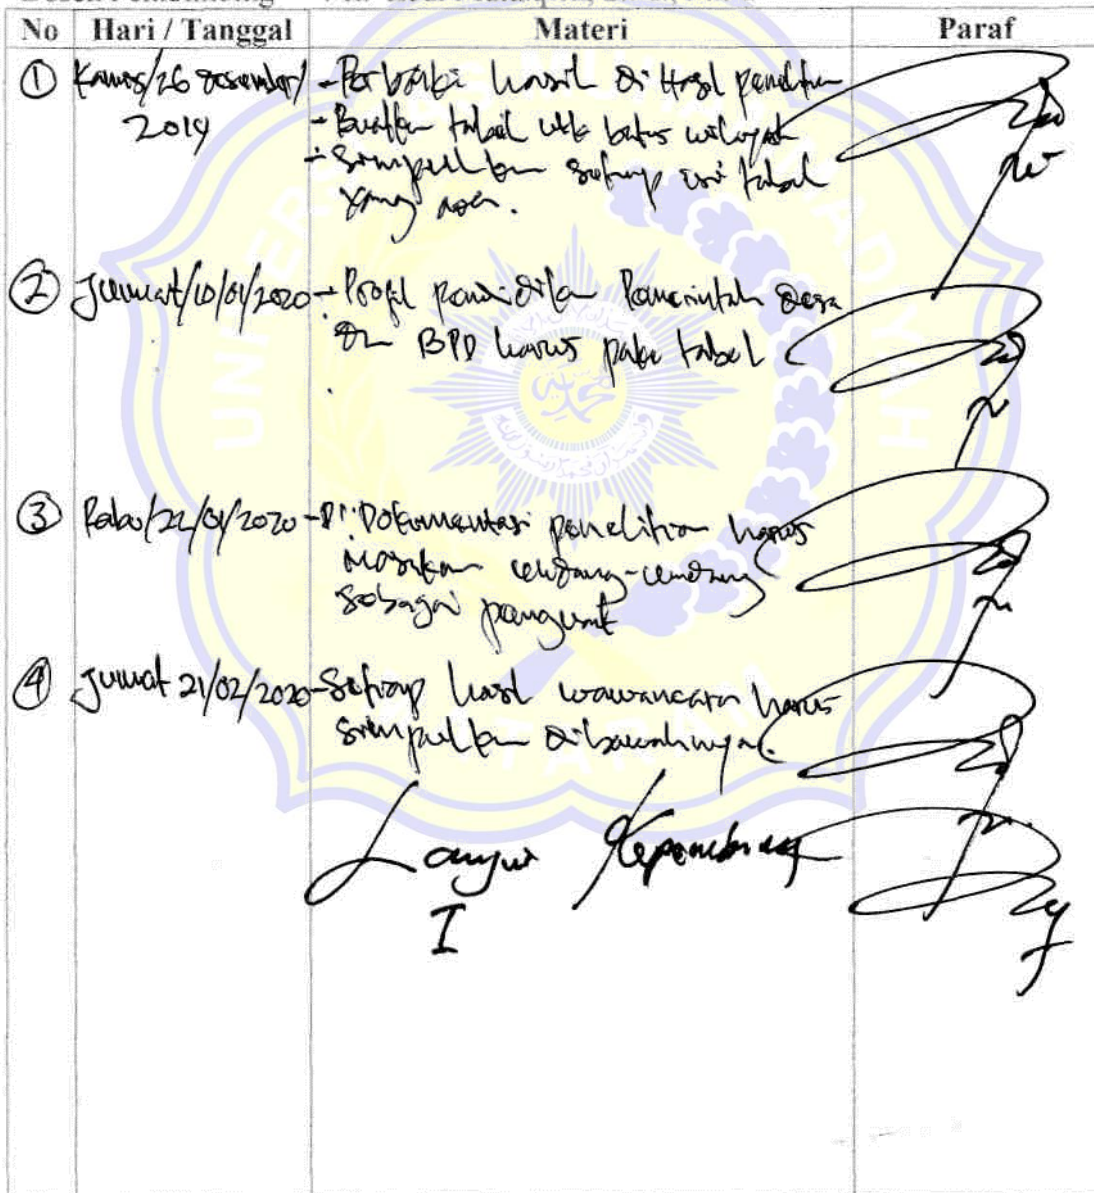 No Hari / Tanggal Materi Paraf
① Kamis/26 Desember/ - Perbaiki hasil di Hasil penelitian
2019 - Buatkan tabel utk batas wilayah
- Simpulkan setiap isi tabel
yang ada.
② Jumat/10/01/2020 - Profil pendidikan Pemerintah Desa
dan BPD harus pake tabel
③ Rabu/22/01/2020 - Dokumentasi penelitian harus
masukan undang-undang
sebagai penguat
④ Jumat 21/02/2020 - Setiap hasil wawancara harus
simpulkan dibawahnya.
Lanjut
I
UNIVERSITAS MUHAMMADIYAH
MATARAM